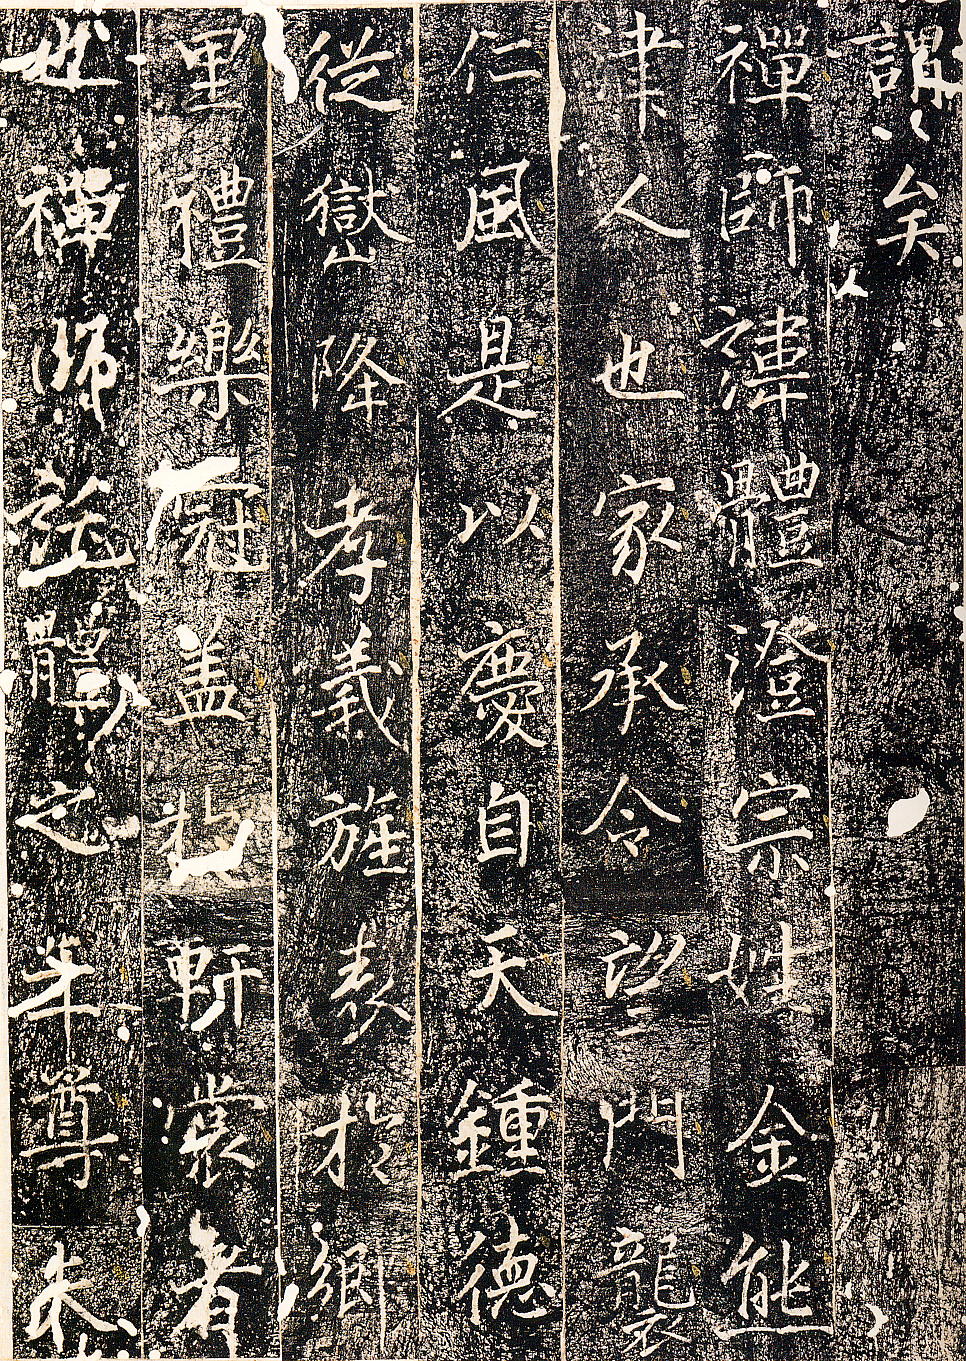 謂矣
禪師諱體澄宗姓金熊
津人也家承令望門襲
仁風是以慶自天鍾德
從嶽降孝義旌表於鄉
里禮樂冠盖於軒裳者
也禪師託體之年尊夫